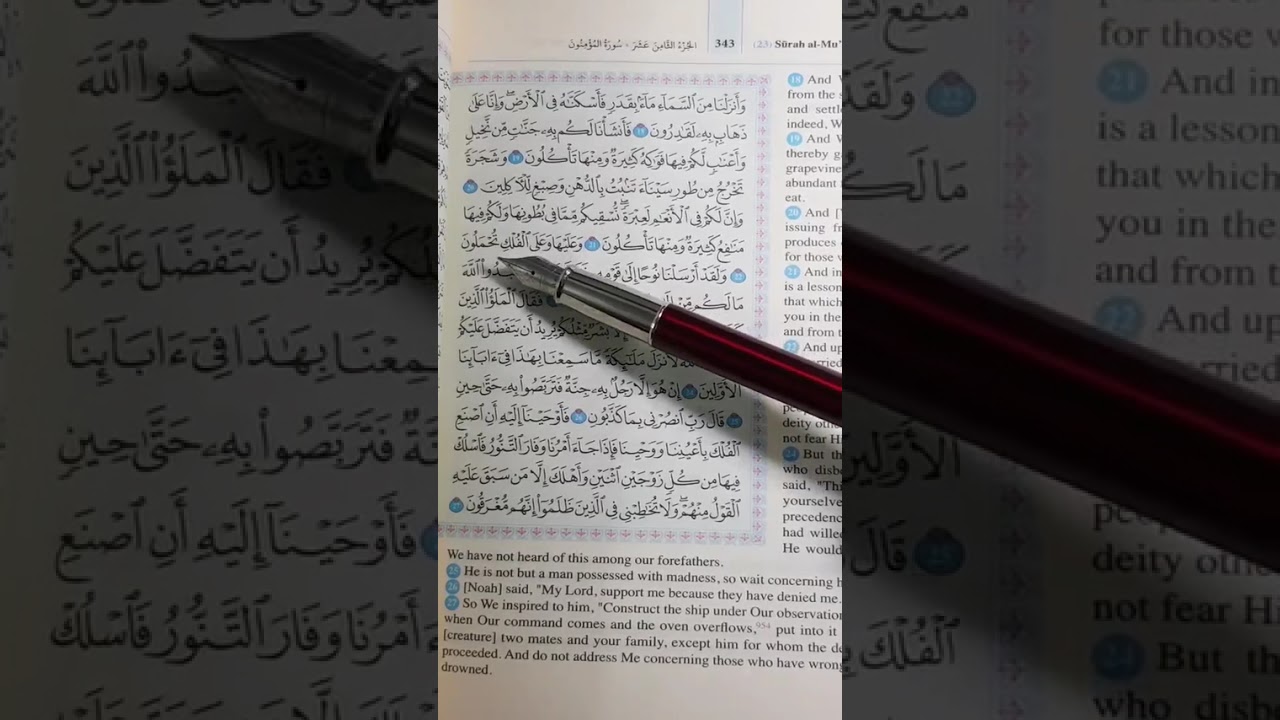 الجزء الثامن عشر - سورة المؤمنون 343 (23) Sūrah al-Mu'
وَأَنزَلْنَا مِنَ ٱلسَّمَآءِ مَآءًۢ بِقَدَرٍ فَأَسْكَنَّٰهُ فِى ٱلْأَرْضِ ۖ وَإِنَّا عَلَىٰ
ذَهَابٍۭ بِهِۦ لَقَٰدِرُونَ ١٨ فَأَنشَأْنَا لَكُم بِهِۦ جَنَّٰتٍ مِّن نَّخِيلٍ
وَأَعْنَٰبٍ لَّكُمْ فِيهَا فَوَٰكِهُ كَثِيرَةٌ وَمِنْهَا تَأْكُلُونَ ١٩ وَشَجَرَةً
تَخْرُجُ مِن طُورِ سَيْنَآءَ تَنۢبُتُ بِٱلدُّهْنِ وَصِبْغٍ لِّلْءَاكِلِينَ ٢٠
وَإِنَّ لَكُمْ فِى ٱلْأَنْعَٰمِ لَعِبْرَةً ۖ نُّسْقِيكُم مِّمَّا فِى بُطُونِهَا وَلَكُمْ فِيهَا
مَنَٰفِعُ كَثِيرَةٌ وَمِنْهَا تَأْكُلُونَ ٢١ وَعَلَيْهَا وَعَلَى ٱلْفُلْكِ تُحْمَلُونَ
٢٢ وَلَقَدْ أَرْسَلْنَا نُوحًا إِلَىٰ قَوْمِهِۦ ٱللَّهَ
مَا لَكُم مِّنْ فَقَالَ ٱلْمَلَؤُا۟ ٱلَّذِينَ
بَشَرٌ مِّثْلُكُمْ يُرِيدُ أَن يَتَفَضَّلَ عَلَيْكُمْ
لَأَنزَلَ مَلَٰٓئِكَةً مَّا سَمِعْنَا بِهَٰذَا فِىٓ ءَابَآئِنَا
ٱلْأَوَّلِينَ ٢٤ إِنْ هُوَ إِلَّا رَجُلٌۢ بِهِۦ جِنَّةٌ فَتَرَبَّصُوا۟ بِهِۦ حَتَّىٰ حِينٍ
٢٥ قَالَ رَبِّ ٱنصُرْنِى بِمَا كَذَّبُونِ ٢٦ فَأَوْحَيْنَآ إِلَيْهِ أَنِ ٱصْنَعِ
ٱلْفُلْكَ بِأَعْيُنِنَا وَوَحْيِنَا فَإِذَا جَآءَ أَمْرُنَا وَفَارَ ٱلتَّنُّورُ ۙ فَٱسْلُكْ
فِيهَا مِن كُلٍّ زَوْجَيْنِ ٱثْنَيْنِ وَأَهْلَكَ إِلَّا مَن سَبَقَ عَلَيْهِ
ٱلْقَوْلُ مِنْهُمْ ۖ وَلَا تُخَٰطِبْنِى فِى ٱلَّذِينَ ظَلَمُوٓا۟ ۖ إِنَّهُم مُّغْرَقُونَ ٢٧
18 And
from the s
and settl
indeed, W
19 And W
thereby g
grapevine
abundant
eat.
20 And [
issuing fr
produces
for those w
21 And in
is a lesson
that which
you in the
and from t
22 And up
rried
deity oth
not fear H
24 But th
who disb
said, "Thi
yourselve
precedenc
had wille
He would
We have not heard of this among our forefathers.
25 He is not but a man possessed with madness, so wait concerning h
26 [Noah] said, "My Lord, support me because they have denied me.
27 So We inspired to him, "Construct the ship under Our observation
when Our command comes and the oven overflows,954 put into it
[creature] two mates and your family, except him for whom the de
proceeded. And do not address Me concerning those who have wrong
drowned.